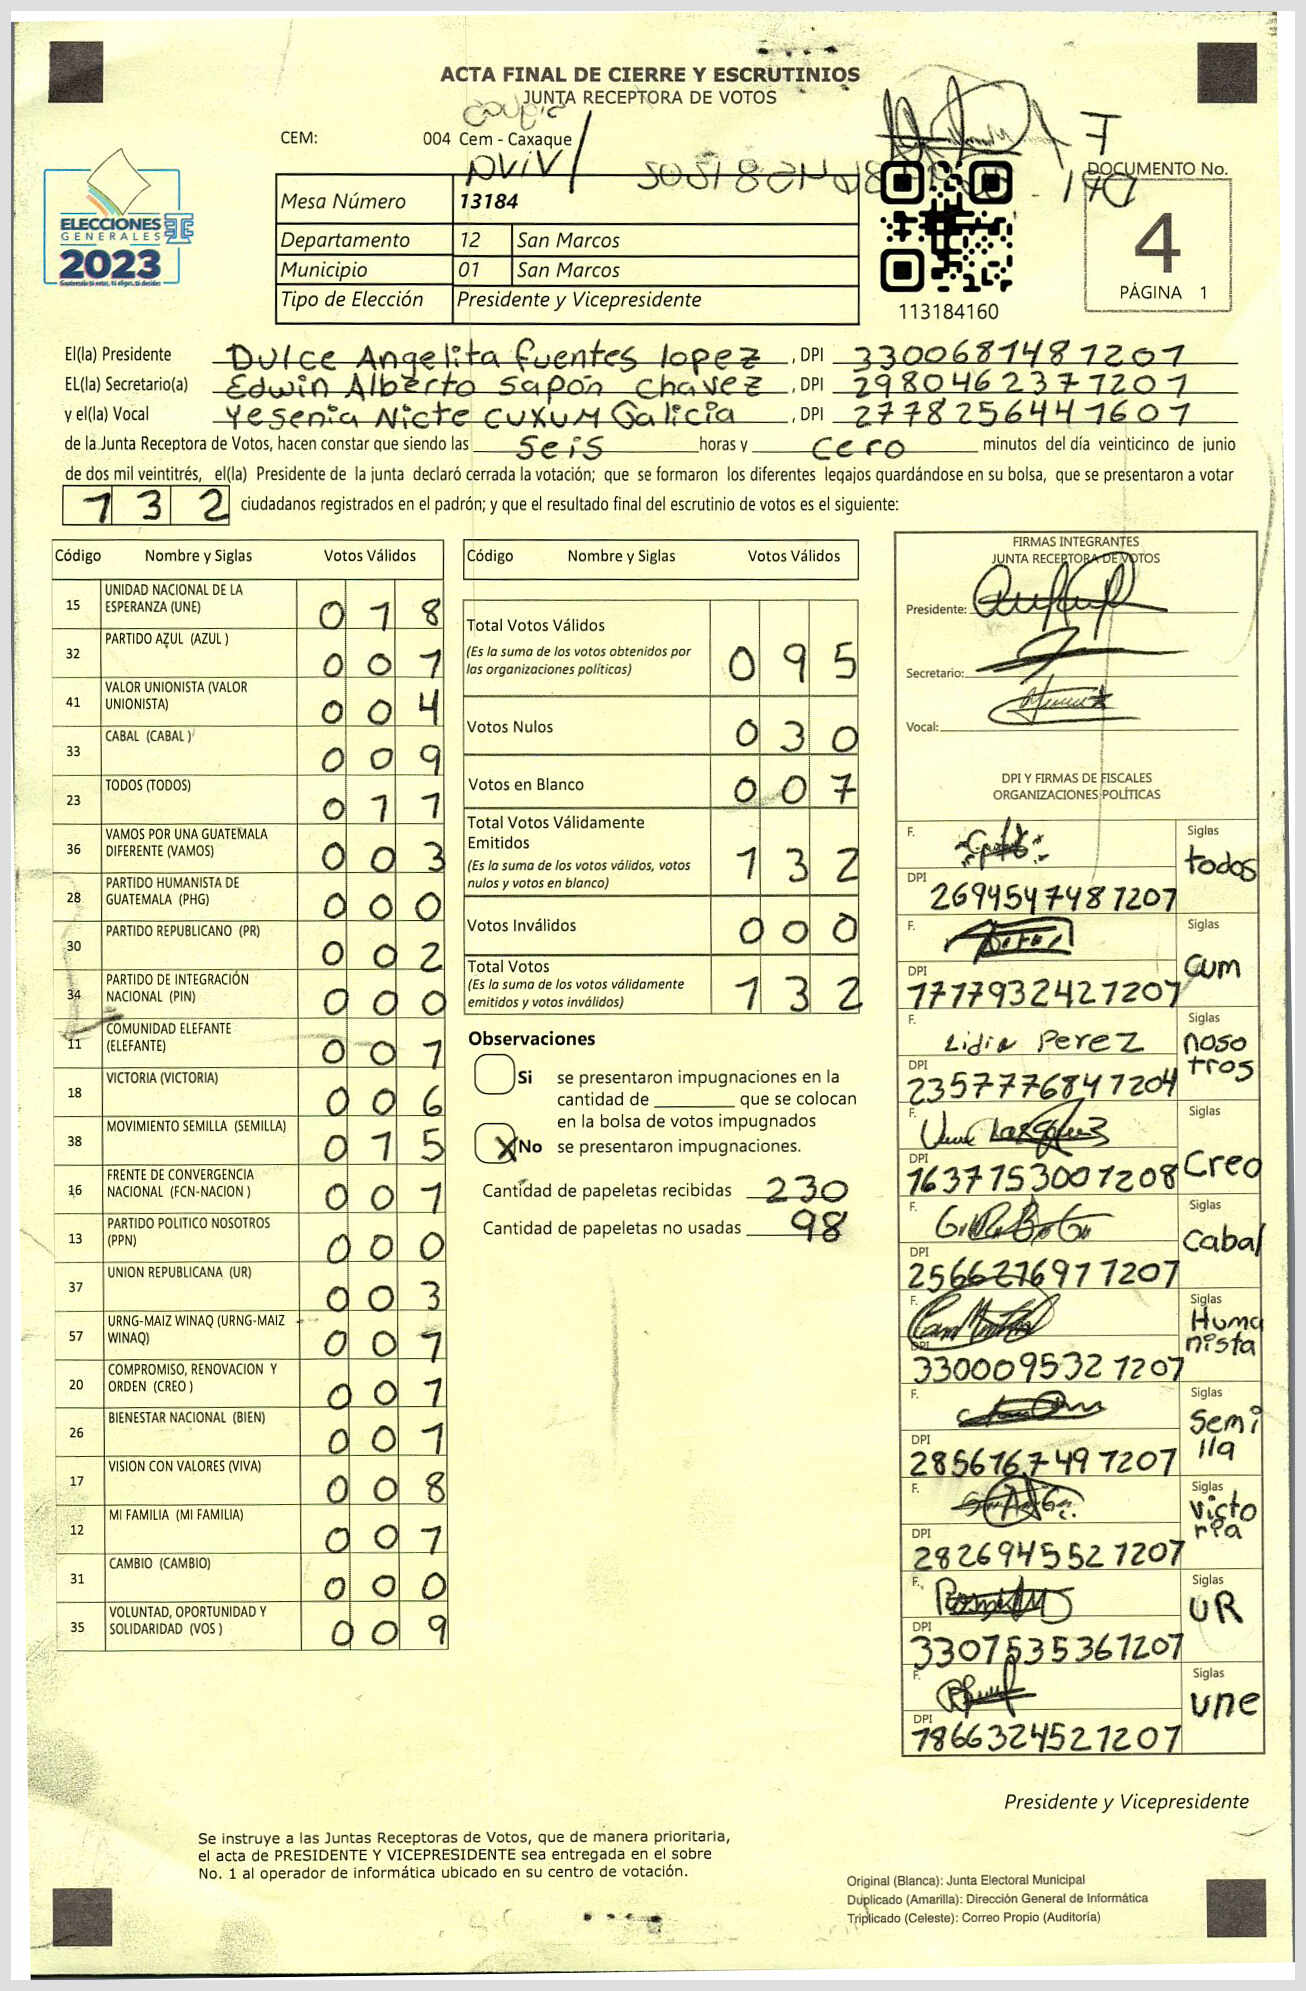 ACTA FINAL DE CIERRE Y ESCRUTINIOS
JUNTA RECEPTORA DE VOTOS
CEM: 004 Cem - Caxaque
DOCUMENTO No.
4
PÁGINA 1
ELECCIONES
GENERALES
2023
Mesa Número 13184
Departamento 12 San Marcos
Municipio 01 San Marcos
Tipo de Elección Presidente y Vicepresidente
113184160
El(la) Presidente Dulce Angelita fuentes lopez, DPI 3300681481201
EL(la) Secretario(a) Edwin Alberto sapón chavez, DPI 2980462371201
y el(la) Vocal Yesenia Nicte CUXUM Galicia, DPI 2778256441601
de la Junta Receptora de Votos, hacen constar que siendo las seis horas y cero minutos del día veinticinco de junio
de dos mil veintitrés, el(la) Presidente de la junta declaró cerrada la votación; que se formaron los diferentes legajos guardándose en su bolsa, que se presentaron a votar
132 ciudadanos registrados en el padrón; y que el resultado final del escrutinio de votos es el siguiente:
Código Nombre y Siglas Votos Válidos
15 UNIDAD NACIONAL DE LA
ESPERANZA (UNE) 018
32 PARTIDO AZUL (AZUL ) 001
41 VALOR UNIONISTA (VALOR
UNIONISTA) 004
33 CABAL (CABAL ) 009
23 TODOS (TODOS) 011
36 VAMOS POR UNA GUATEMALA
DIFERENTE (VAMOS) 003
28 PARTIDO HUMANISTA DE
GUATEMALA (PHG) 000
30 PARTIDO REPUBLICANO (PR) 002
34 PARTIDO DE INTEGRACIÓN
NACIONAL (PIN) 000
11 COMUNIDAD ELEFANTE
(ELEFANTE) 001
18 VICTORIA (VICTORIA) 006
38 MOVIMIENTO SEMILLA (SEMILLA) 015
16 FRENTE DE CONVERGENCIA
NACIONAL (FCN-NACION ) 001
13 PARTIDO POLITICO NOSOTROS
(PPN) 000
37 UNION REPUBLICANA (UR) 003
57 URNG-MAIZ WINAQ (URNG-MAIZ
WINAQ) 001
20 COMPROMISO, RENOVACION Y
ORDEN (CREO ) 001
26 BIENESTAR NACIONAL (BIEN) 001
17 VISION CON VALORES (VIVA) 008
12 MI FAMILIA (MI FAMILIA) 001
31 CAMBIO (CAMBIO) 000
35 VOLUNTAD, OPORTUNIDAD Y
SOLIDARIDAD (VOS ) 009
Código Nombre y Siglas Votos Válidos
Total Votos Válidos
(Es la suma de los votos obtenidos por
las organizaciones políticas) 095
Votos Nulos 030
Votos en Blanco 007
Total Votos Válidamente
Emitidos
(Es la suma de los votos válidos, votos
nulos y votos en blanco) 132
Votos Inválidos 000
Total Votos
(Es la suma de los votos válidamente
emitidos y votos inválidos) 132
Observaciones
Si se presentaron impugnaciones en la
cantidad de ________ que se colocan
en la bolsa de votos impugnados
X No se presentaron impugnaciones.
Cantidad de papeletas recibidas 230
Cantidad de papeletas no usadas 98
FIRMAS INTEGRANTES
JUNTA RECEPTORA DE VOTOS
Presidente:
Secretario:
Vocal:
DPI Y FIRMAS DE FISCALES
ORGANIZACIONES POLÍTICAS
F. Siglas
todos
DPI
2694547481201
F. Siglas
CUM
DPI
1777932421201
F. Lidia Perez Siglas
noso
tros
DPI
2357776841204
F. Siglas
Creo
DPI
1637153001208
F. Siglas
Cabal
DPI
2566276911201
F. Siglas
Huma
nista
DPI
3300095321201
F. Siglas
Semi
lla
DPI
2856167491201
F. Siglas
Victo
ria
DPI
2826945521201
F. Siglas
UR
DPI
3301535361201
F. Siglas
une
DPI
1866324521201
Presidente y Vicepresidente
Se instruye a las Juntas Receptoras de Votos, que de manera prioritaria,
el acta de PRESIDENTE Y VICEPRESIDENTE sea entregada en el sobre
No. 1 al operador de informática ubicado en su centro de votación.
Original (Blanca): Junta Electoral Municipal
Duplicado (Amarilla): Dirección General de Informática
Triplicado (Celeste): Correo Propio (Auditoría)